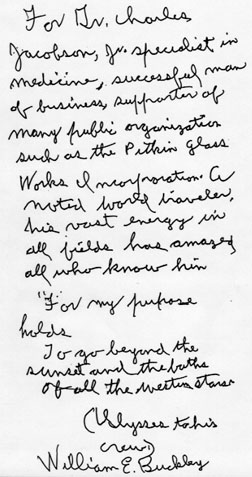 For Dr. Charles
Jacobson, Jr. specialist in
medicine, successful man
of business, supporter of
many public organization
such as the Pitkin Glass
Works Incorporation. A
noted world traveler,
his vast energy in
all fields has amazed
all who know him
"For my purpose
holds
To go beyond the
sunset and the baths
Of all the western stars"
(Ulysses to his
crew)
William E. Buckley